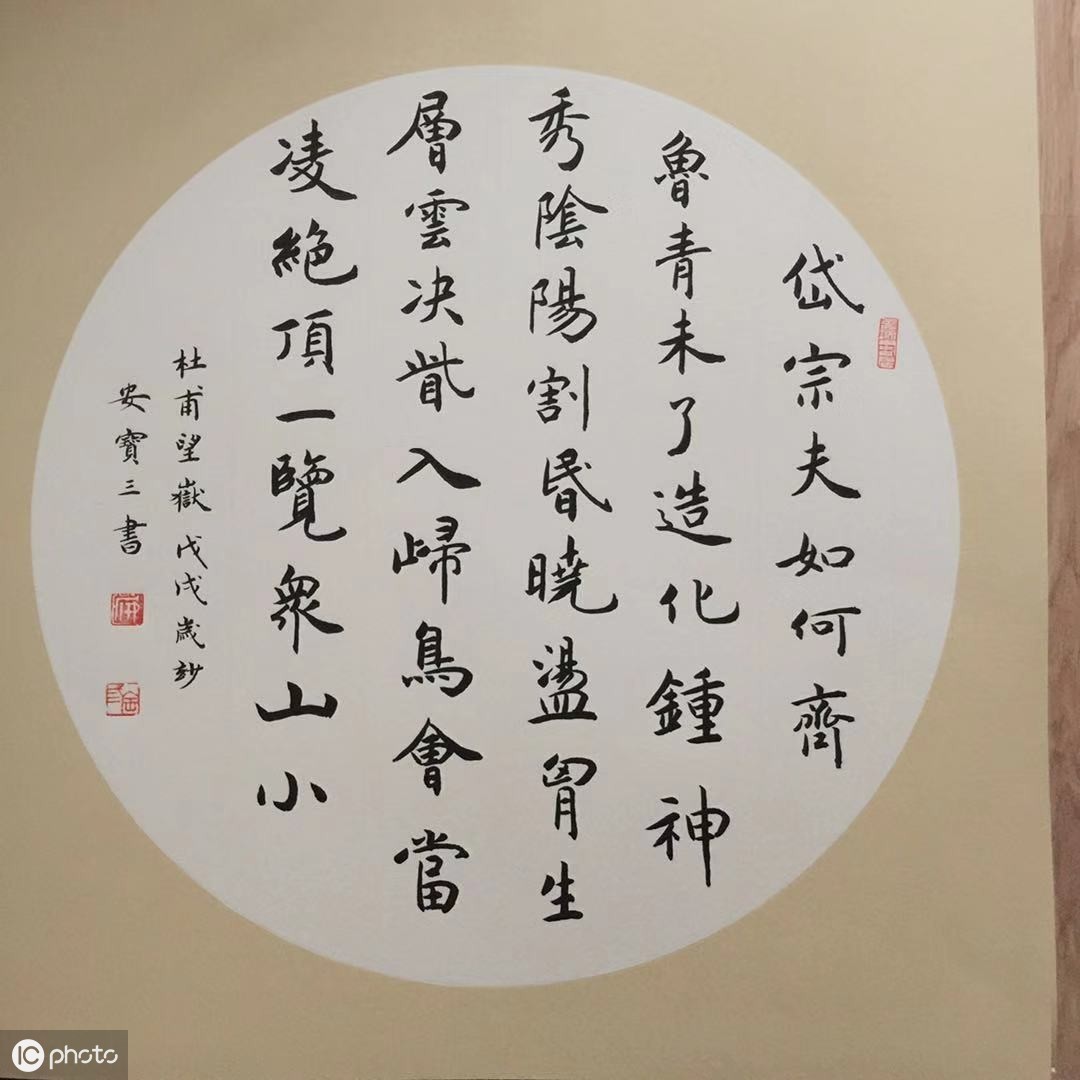 岱宗夫如何齊
魯青未了造化鍾神
秀陰陽割昬曉盪胷生
層雲决眥入歸鳥會當
凌絕頂一覽眾山小
杜甫望嶽戊戌歲
安寶三書
IC photo